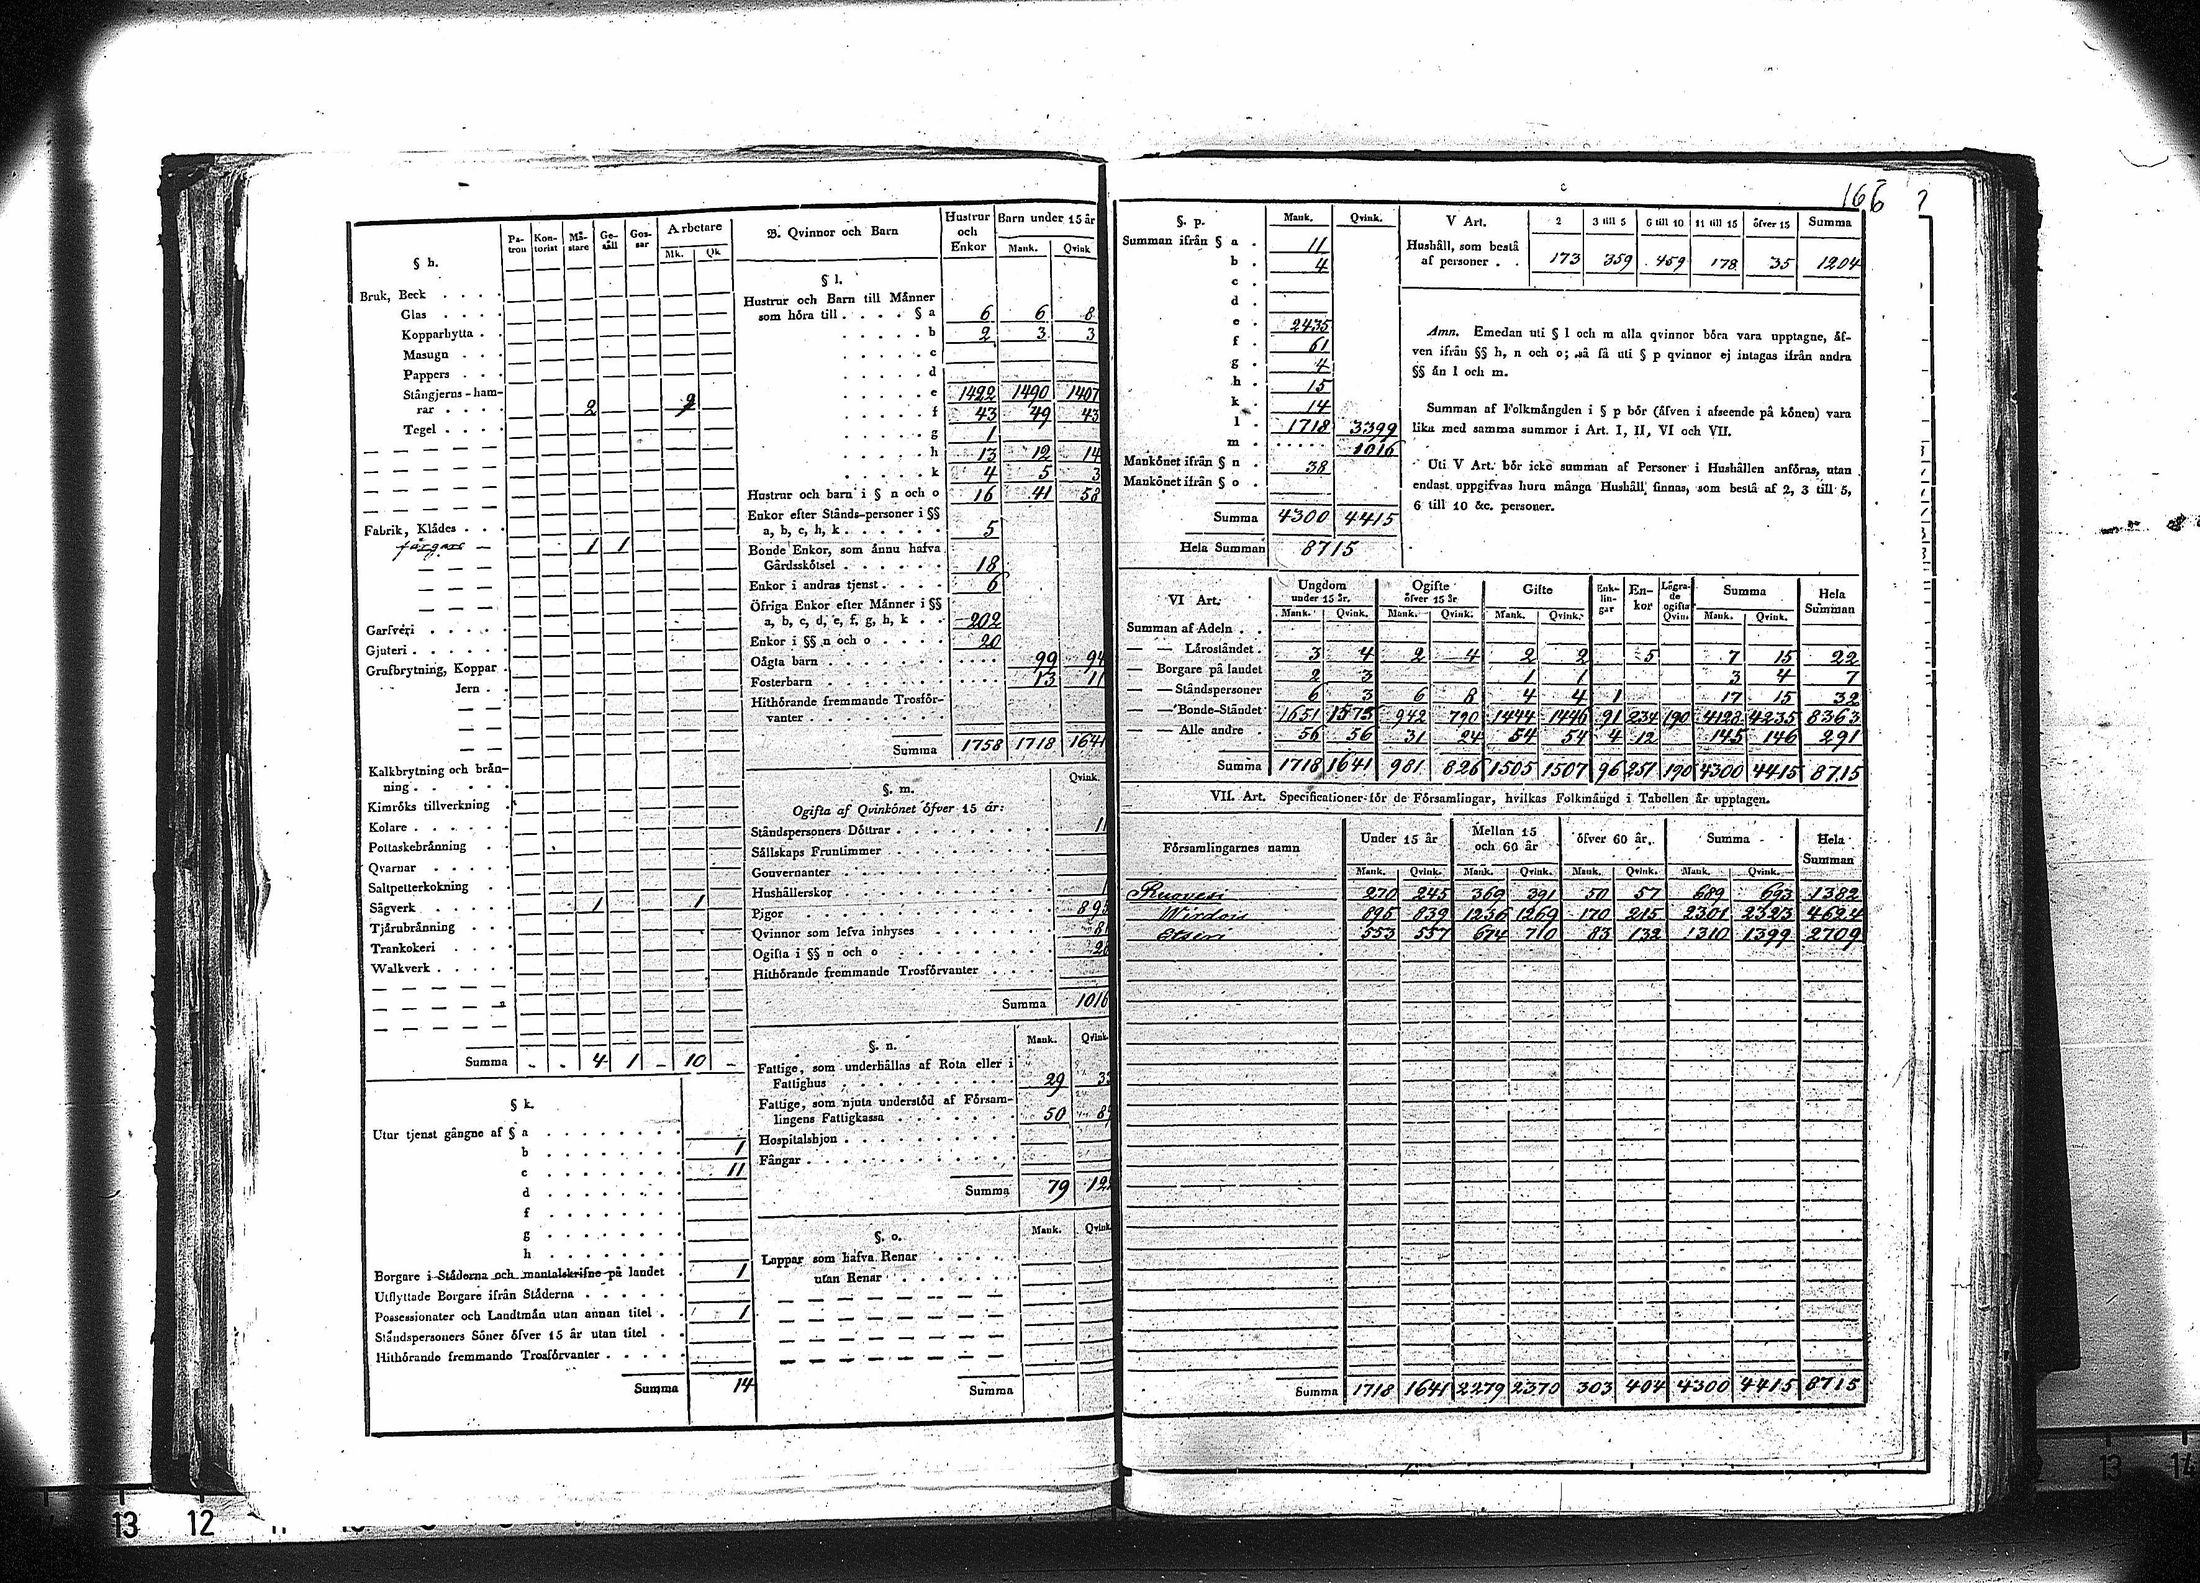 166
§ h.
Pa-tron Kon-torist Mä-stare Ge-säll Gos-sar Arbetare
Mk. Qk
Bruk, Beck
Glas
Kopparhytta
Masugn
Pappers
Stångjerns-ham-
rar 2
Tegel
Fabrik, Klädes
färgare 1 1
Garfveri
Gjuteri
Grufbrytning, Koppar
Jern
Kalkbrytning och brän-
ning
Kimröks tillverkning
Kolare
Pottaskebränning
Qvarnar
Saltpetterkokning
Sågverk 1 1
Tjärubränning
Trankokeri
Walkverk
Summa - - 4 1 - 10 -
§ k.
Utur tjenst gångne af § a
b 1
c 11
d
f
g
h
Borgare i Städerna och mantalskrifne på landet 1
Utflyttade Borgare ifrån Städerna
Possessionater och Landtmän utan annan titel 1
Ståndspersoners Söner öfver 15 år utan titel
Hithörande fremmande Trosförvanter
Summa 14
B. Qvinnor och Barn
Hustrur och Enkor Barn under 15 år
Mank. Qvink
§ l.
Hustrur och Barn till Männer
som höra till § a 6 6 8
b 2 3 3
c
d
e 1422 1490 1407
f 43 49 43
g 1
h 13 12 14
k 4 5 3
Hustrur och barn i § n och o 16 41 58
Enkor efter Stånds-personer i §§
a, b, c, h, k 5
Bonde Enkor, som ännu hafva
Gårdsskötsel 18
Enkor i andras tjenst 6
Öfriga Enkor efter Männer i §§
a, b, c, d, e, f, g, h, k 202
Enkor i §§ n och o 20
Oägta barn 99 94
Fosterbarn 13 11
Hithörande fremmande Trosför-
vanter
Summa 1758 1718 1641
§. m.
Qvink.
Ogifta af Qvinkönet öfver 15 år:
Ståndspersoners Döttrar 11
Sällskaps Fruntimmer
Gouvernanter
Hushållerskor 1
Pigor 895
Qvinnor som lefva inhyses 81
Ogifta i §§ n och o 28
Hithörande fremmande Trosförvanter
Summa 1016
§. n.
Mank. Qvink
Fattige, som underhållas af Rota eller i
Fattighus 29
Fattige, som njuta understöd af Försam-
lingens Fattigkassa 50
Hospitalshjon
Fångar
Summa 79
§. o.
Mank. Qvink
Lappar som hafva Renar
utan Renar
Summa
§. p.
Mank. Qvink.
Summan ifrån § a 11
b 4
c
d
e 2435
f 61
g 4
h 15
k 14
l 1718 3399
m 1016
Mankönet ifrån § n 38
Mankönet ifrån § o
Summa 4300 4415
Hela Summan 8715
V Art. 2 3 till 5 6 till 10 11 till 15 öfver 15 Summa
Hushåll, som bestå
af personer 173 359 459 178 35 1204
Anm. Emedan uti § l och m alla qvinnor böra vara upptagne, äf-
ven ifrån §§ h, n och o; så få uti § p qvinnor ej intagas ifrån andra
§§ än l och m.
Summan af Folkmängden i § p bör (äfven i afseende på könen) vara
lika med samma summor i Art. I, II, VI och VII.
Uti V Art. bör icke summan af Personer i Hushållen anföras, utan
endast uppgifvas huru många Hushåll finnas, som bestå af 2, 3 till 5,
6 till 10 &c. personer.
VI Art. Ungdom under 15 år. Ogifte öfver 15 år Gifte Enk-lin-gar En-kor Lägra-de ogifta Qvin. Summa Hela Summan
Mank. Qvink. Mank. Qvink. Mank. Qvink. Mank. Qvink.
Summan af Adeln
— — Läroståndet 3 4 2 4 2 2 5 7 15 22
— Borgare på landet 2 3 1 1 3 4 7
— — Ståndspersoner 6 3 6 8 4 4 1 17 15 32
— — Bonde-Ståndet 1651 1575 942 790 1444 1446 91 234 190 4128 4235 8363
— — Alle andre 56 56 31 24 54 54 4 12 145 146 291
Summa 1718 1641 981 826 1505 1507 96 251 190 4300 4415 8715
VII. Art. Specificationer för de Församlingar, hvilkas Folkmängd i Tabellen är upptagen.
Församlingarnes namn Under 15 år Mellan 15 och 60 år öfver 60 år. Summa Hela Summan
Mank. Qvink. Mank. Qvink. Mank. Qvink. Mank. Qvink.
Ruovesi 270 245 369 391 50 57 689 693 1382
Wirdois 895 839 1236 1269 170 215 2301 2323 4624
Etseri 553 557 674 710 83 132 1310 1399 2709
Summa 1718 1641 2279 2370 303 404 4300 4415 8715
13 12
13 14